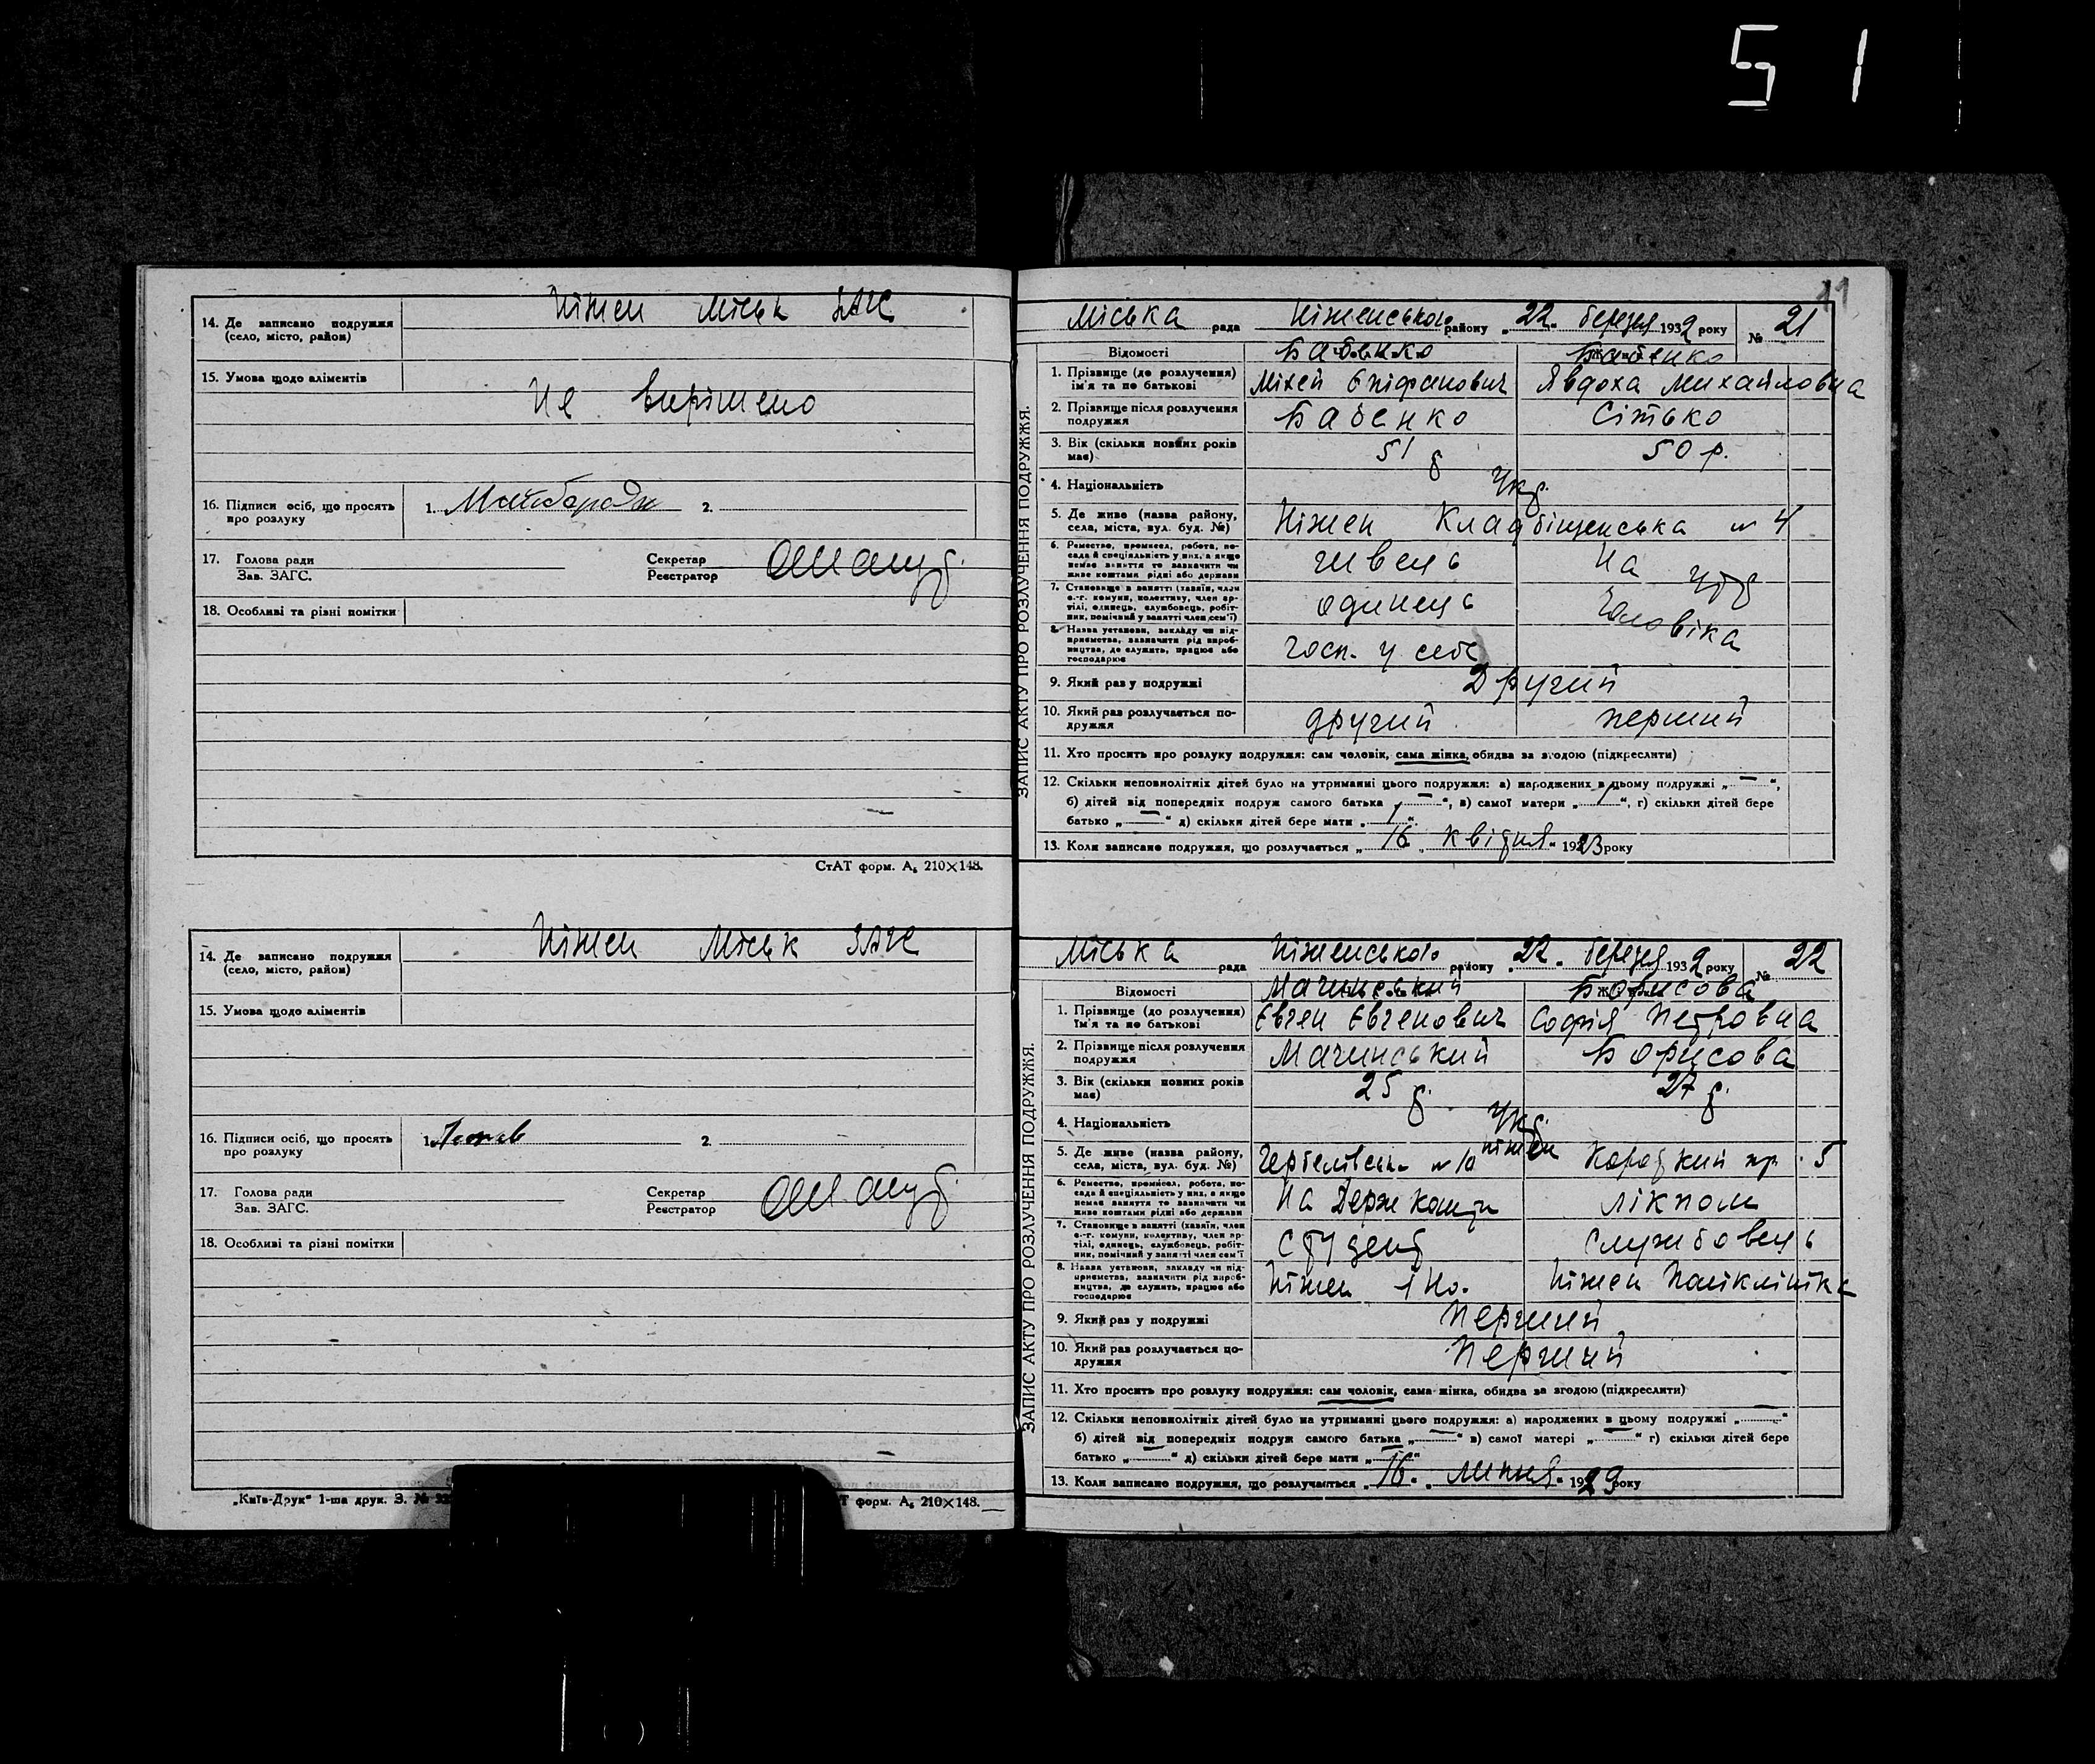 51
14. Де записано подружжя (село, місто, район)
Ніжен Міськ ЗАГС
15. Умова щодо аліментів
Не вирішено
16. Підписи осіб, що просять про розлуку
1. 2.
17. Голова ради Зав. ЗАГС.
Секретар Реєстратор
18. Особливі та різні помітки
СтАТ форм. А₅ 210×148.
14. Де записано подружжя (село, місто, район)
Ніжен Міськ ЗАГС
15. Умова щодо аліментів
16. Підписи осіб, що просять про розлуку
1. 2.
17. Голова ради Зав. ЗАГС.
Секретар Реєстратор
18. Особливі та різні помітки
„Київ-Друк“ 1-ша друк. З. №
форм. А₅ 210×148.
ЗАПИС АКТУ ПРО РОЗЛУЧЕННЯ ПОДРУЖЖЯ.
Міська рада Ніженського району „22“ березня 1932 року № 21
Відомості Бабенко Бабенко
1. Прізвище (до розлучення) ім'я та по батькові
Міхей Епіфанович Явдоха Михайловна
2. Прізвище після розлучення подружжя
Бабенко Сітько
3. Вік (скільки повних років має)
51 р 50 р.
4. Національність
Укр.
5. Де живе (назва району, села, міста, вул. буд. №)
Ніжен Кладбіщенська № 4
6. Ремество, промисел, робота, посада й спеціяльність у них, а якщо немає заняття то зазначити чи живе коштами рідні або держави
чивець На утр
7. Становище в занятті (хазяїн, член с.-г. комуни, колективу, член артілі, одинець, службовець, робітник, помічний у занятті член сем'ї)
одинець Чоловіка
8. Назва установи, закладу чи підприємства, зазначити рід виробництва, де служить, працює або господарює
госп. у себе
9. Який раз у подружжі
Другий
10. Який раз розлучається подружжя
другий перший
11. Хто просить про розлуку подружжя: сам чоловік, сама жінка, обидва за згодою (підкреслити)
12. Скільки неповнолітніх дітей було на утриманні цього подружжя: а) народжених в цьому подружжі „—“,
б) дітей від попередніх подруж самого батька „—“, в) самої матери „1“, г) скільки дітей бере
батько „—“ д) скільки дітей бере мати „1“.
13. Коли записано подружжя, що розлучається „16“ „квітня“ 1923 року
ЗАПИС АКТУ ПРО РОЗЛУЧЕННЯ ПОДРУЖЖЯ.
Міська рада Ніженського району „22“ березня 1932 року № 22
Відомості Мачинський Борисова
1. Прізвище (до розлучення) ім'я та по батькові
Євген Євгенович Софія Петровна
2. Прізвище після розлучення подружжя
Мачинський Борисова
3. Вік (скільки повних років має)
25 р. 27 р.
4. Національність
Укр.
5. Де живе (назва району, села, міста, вул. буд. №)
ніжен
№ 10 Короткий пр. 5
6. Ремество, промисел, робота, посада й спеціяльність у них, а якщо немає заняття то зазначити чи живе коштами рідні або держави
На Держ кошти лікпом
7. Становище в занятті (хазяїн, член с.-г. комуни, колективу, член артілі, одинець, службовець, робітник, помічний у занятті член сем'ї
Студент Службовець
8. Назва установи, закладу чи підприємства, зазначити рід виробництва, де служить, працює або господарює
Ніжен ІНО. Ніжен Поліклініка
9. Який раз у подружжі
Перший
10. Який раз розлучається подружжя
Перший
11. Хто просить про розлуку подружжя: сам чоловік, сама жінка, обидва за згодою (підкреслити)
12. Скільки неповнолітніх дітей було на утриманні цього подружжя: а) народжених в цьому подружжі „—“
б) дітей від попередніх подруж самого батька „—“ в) самої матері „—“ г) скільки дітей бере
батько „—“ д) скільки дітей бере мати „—“
13. Коли записано подружжя, що розлучається „16“ „липня“ 1929 року